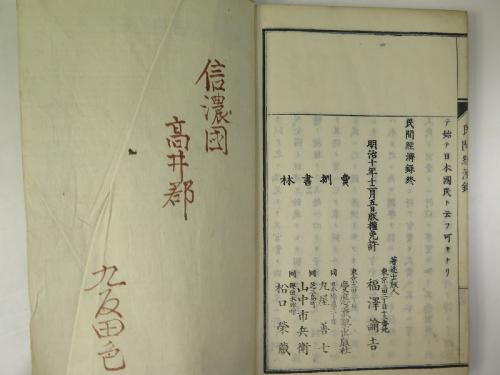 民間経濟録
テ始テ日本國民ト云フ可キナリ
民間經濟録終
明治十年十二月五日版權免許
著述出版人
東京三田二丁目十三番地
福澤諭吉
賣捌書林
慶應義塾出版社
同
丸屋善七
同
山中市兵衛
同
松口榮蔵
信濃國
高井郡
九反田邑